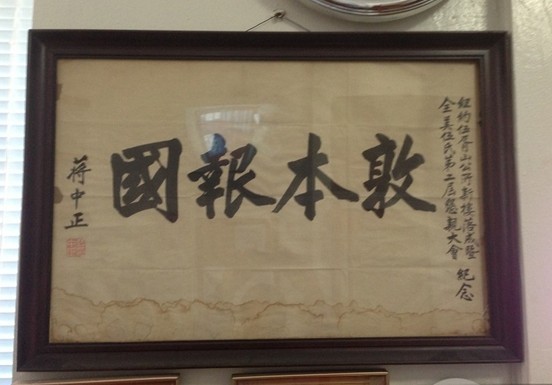 紐約伍胥山公所新樓落成暨
全美伍氏第二屆懇親大會 紀念
敦本報國
蔣中正